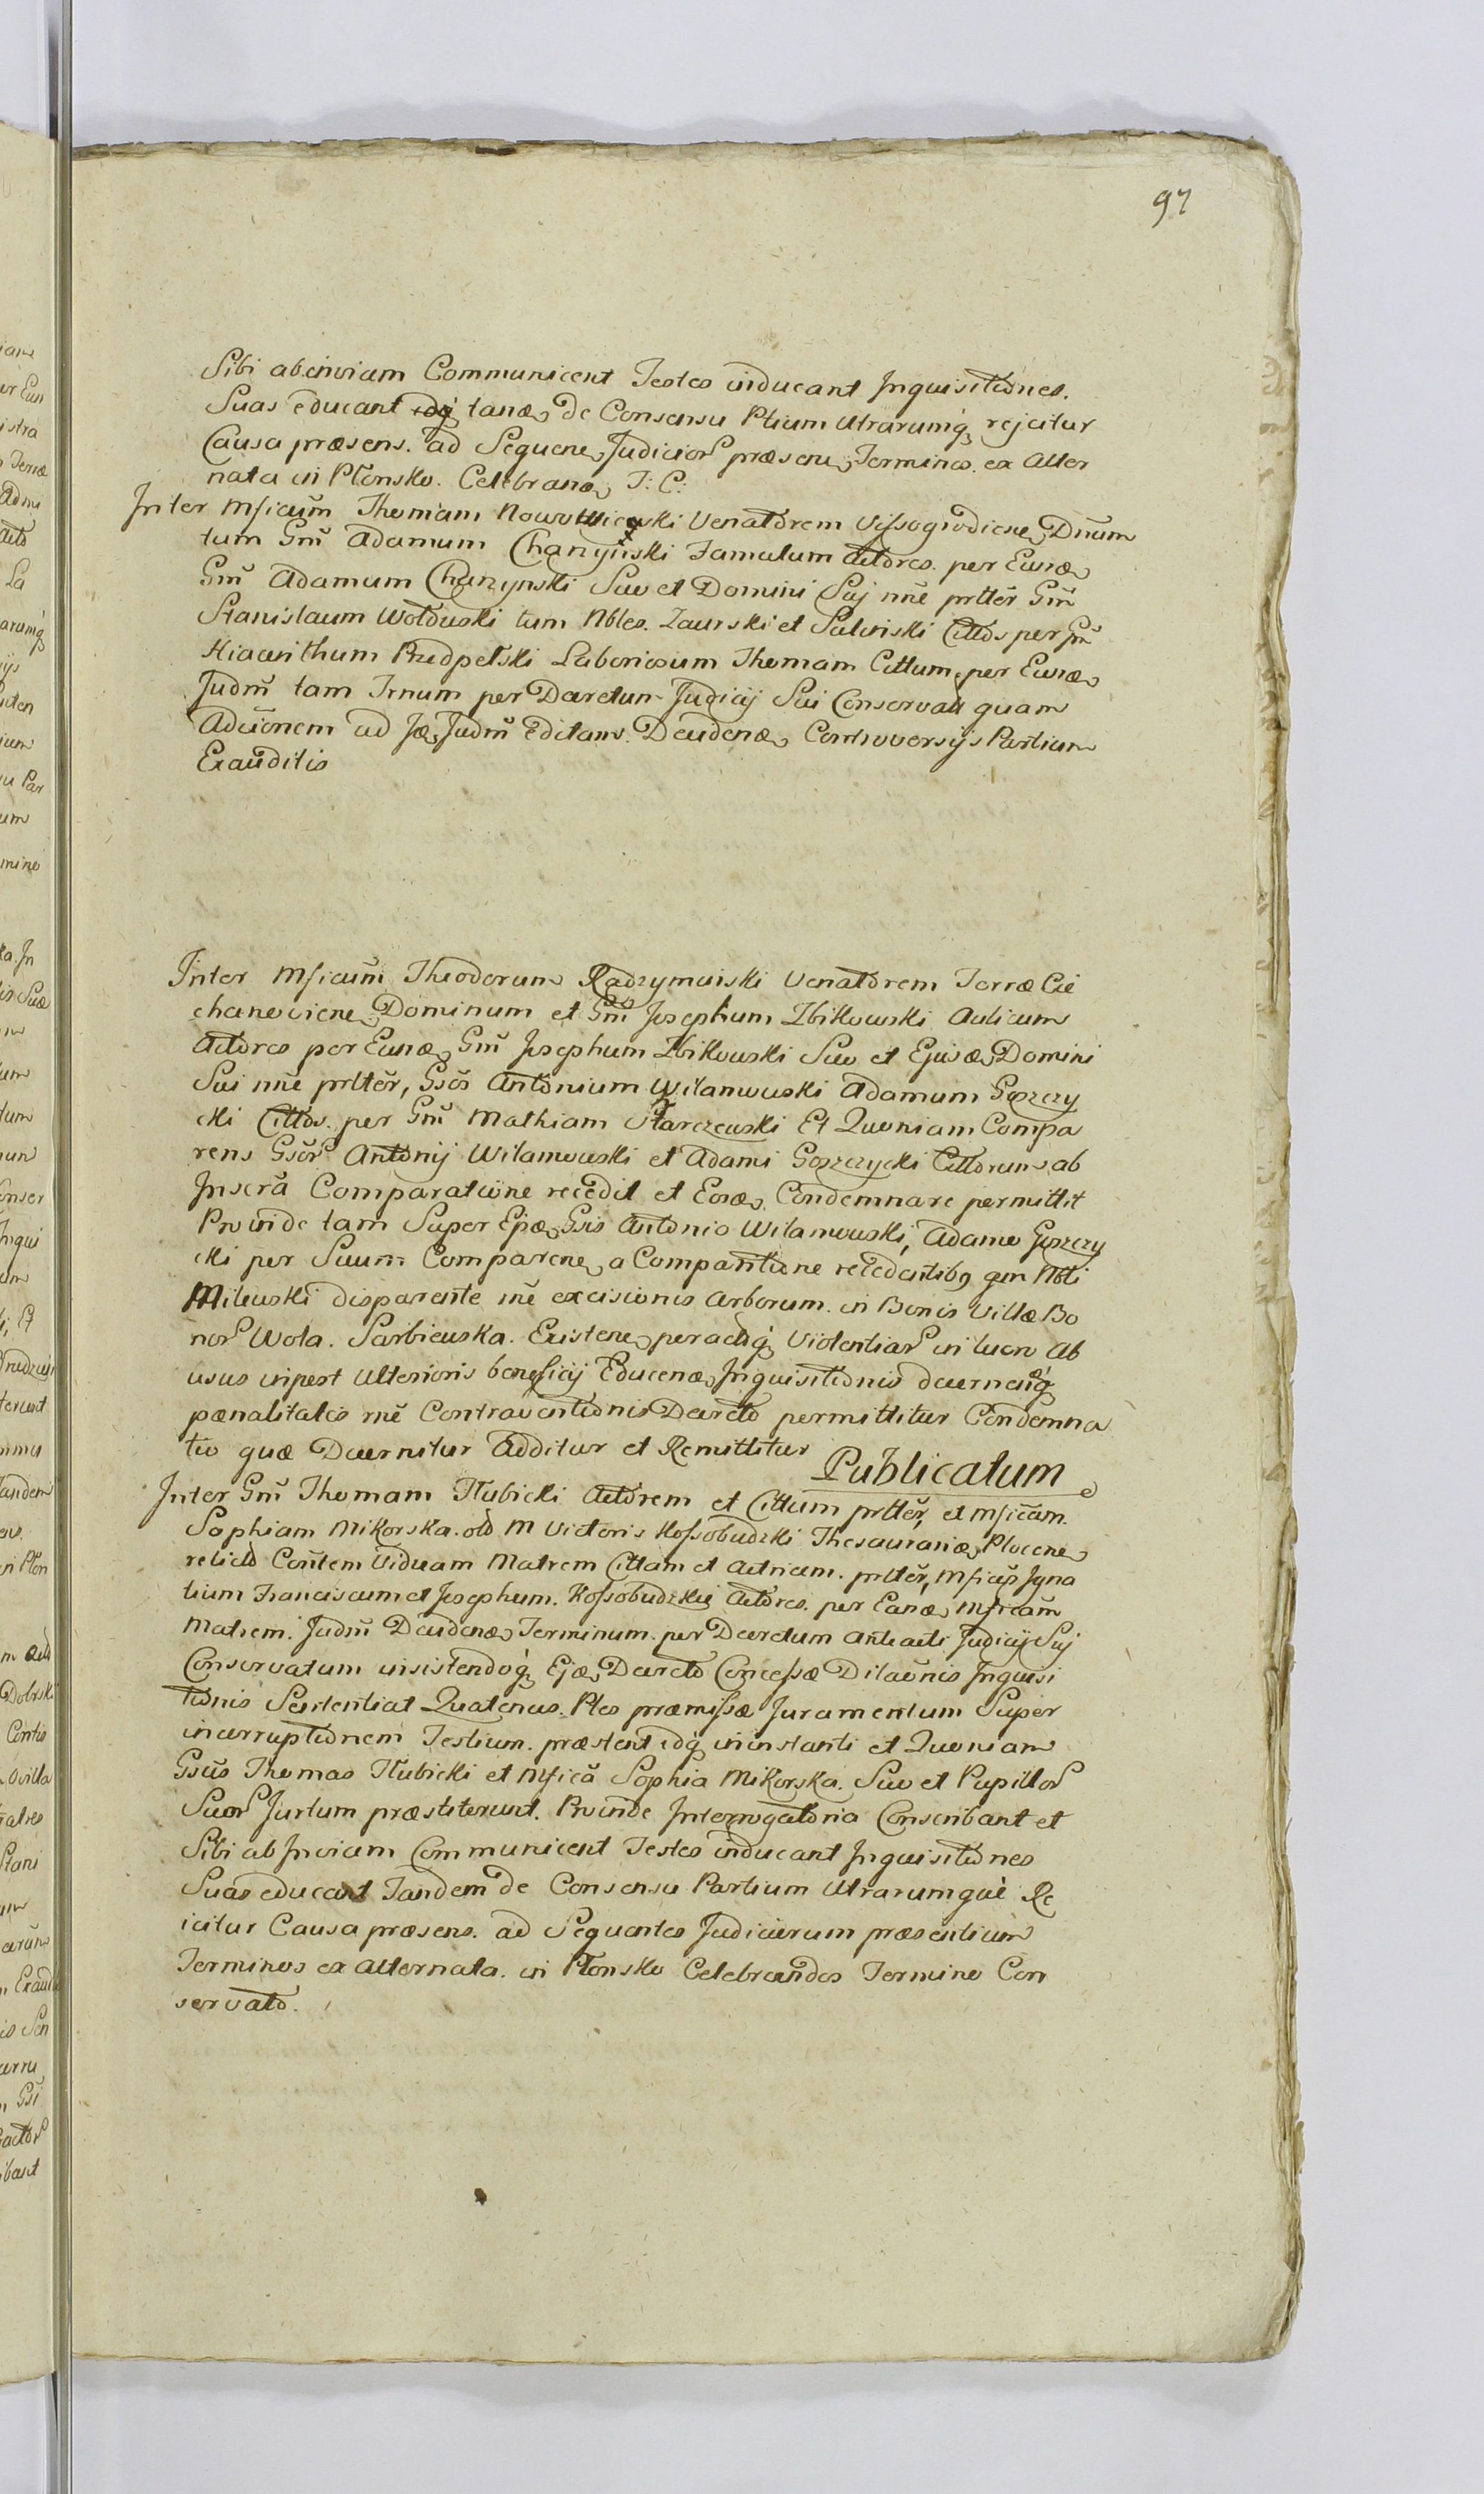 97
Sibi abinviam Communicent Testes inducant Inquisitiones.
Suas educant idq tanđ de Consensu Ptium Utrarumq rejcitur
Causa præsens. ad Sequen Judicior præsen Terminos. ex Alter
nata in Płonsko. Celebrand T: C:
Inter Mficum Thomam Nowowieyski Venatorem Vissogrodien Dnum
tum Gm Adamum Charzyński Famulum Actores. per Eund
Gm Adamum Charzynski Suo et Domini Suj nne prtter Gm
Stanislaum Wołowski tum Nbles. Zaurski et Suliński Cittos per Gm
Hiacinthum Przedpełski Laboriosum Thomam Cittum per Eund
Judm tam Trnum per Decretum Judicij Sui Conservatu quam
Adcionem ad Id Judm Editam. Decidend Controversijs Partium
Exauditis
Inter Mficum Theodorum Radzymiński Venatorem Terræ Cie
chanovien Dominum et Gm Josephum Zbikowski Aulicum
Actores per Eund Gm Josephum Zbikowski Suo et Ejusd Domini
Sui nne prtter, Gsos Antonium Wilamowski Adamum Goszczy
cki Cittos. per Gm Mathiam Starczewski Et Quoniam Compa
rens Gsor Antonij Wilamowski et Adami Goszczycki Cittorum ab
Inscra Comparatione recedit et Eosd Condemnare permittit
Proinde tam Super Ejsd Gsis Antonio Wilamowski, Adamo Goszczy
cki per Suum Comparen a Comparitione recedentibq qm Nbli
Milewski disparente rne excisionis arborum. in Bonis Villæ Bo
nor Wola. Sarbiewska. Existen peractq Violentiar in lucro Ab
usus inpert ulterioris beneficij Educend Inquisitionis decernendq
pænalitatis rne Contraventionis Decreto permittitur Condemna
tio quæ Decernitur Additur et Remittitur
Publicatum
Inter Gm Thomam Hubicki Actorem et Cittum prtter, et Mficam.
Sophiam Mikorska. olo M Victoris Kossobudzki Thesaurarid Plocen
relicto Contem Viduam Matrem Cittam et Actricem. prtter, Mficos Igna
tium Franciscum et Josephum. Kossobudzkie Actores. per Eand Mficam
Matrem. Judm Decidend Terminum. per Decretum anteacti Judicij Suj
Conservatum insistendoq Ejsd Decreto Concessæ Dilaonis Inquisi
tionis Sententiat Quatenus. Ptes præmissa Juramentum Super
incorruptionem Testium. præstent idq ininstanti et Quoniam
Gsus Thomas Hubicki et Mfica Sophia Mikorska. Suo et Pupillor
Suor Jurtum præstiterunt. Proinde Interrogatoria Conscribant et
Sibi ab Inviam Communicent Testes inducant Inquisitiones
Suas educant Tandem de Consensu Partium Utrarumque Re
icitur Causa præsens. ad Sequentes Judiciorum præsentium
Terminos ex alternata. in Płonsko Celebrandos Termino Con
servato.